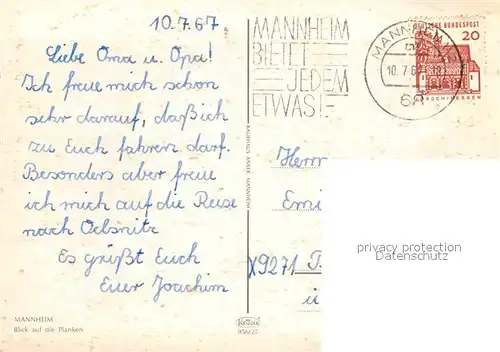 10.7.67
Liebe Oma u. Opa!
Ich freue mich schon
sehr darauf, daß ich
zu Euch fahren darf.
Besonders aber freue
ich mich auf die Reise
nach Oelsnitz
Es grüßt Euch
Euer Joachim
MANNHEIM
Blick auf die Planken
KAUFHAUS ANKER MANNHEIM
MANNHEIM
BIETET
JEDEM
ETWAS!
MANNHEIM
10.7.67
68
DEUTSCHE BUNDESPOST
20
LORSCH/HESSEN
Herrn
Emi
X9271
privacy protection
Datenschutz